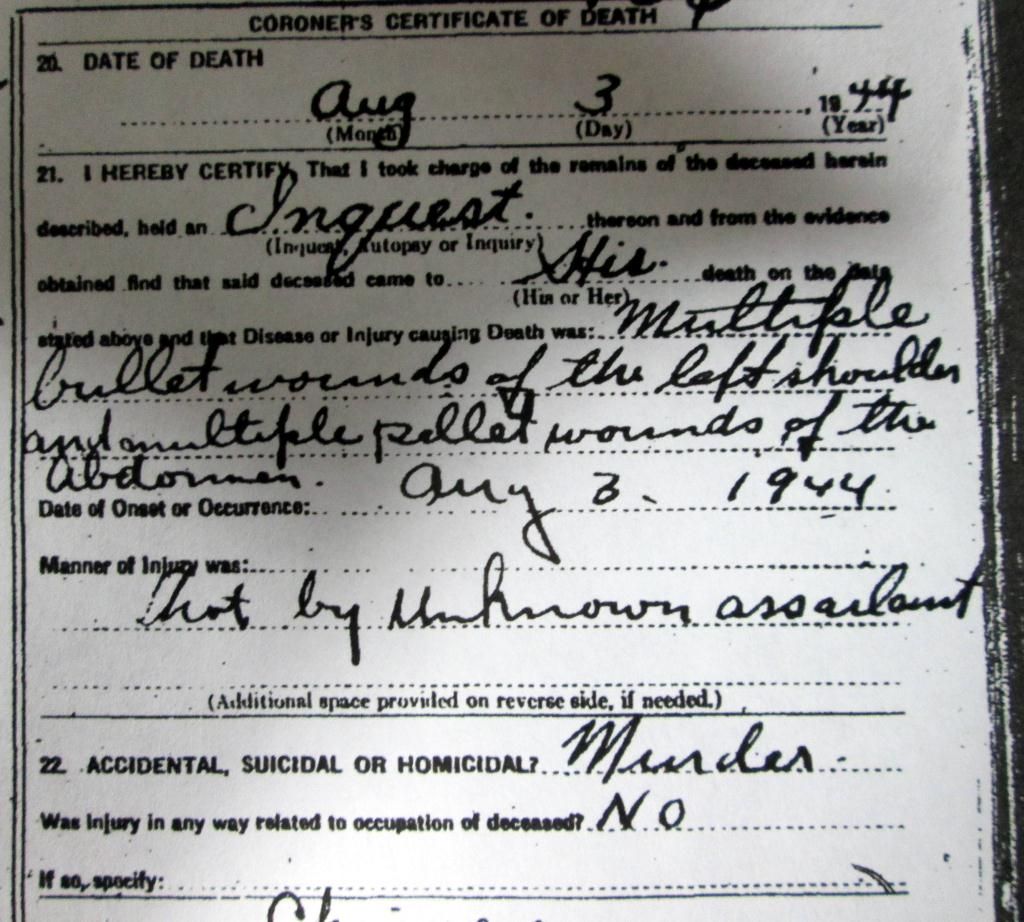 CORONER'S CERTIFICATE OF DEATH
20. DATE OF DEATH
Aug 3, 1944
(Month) (Day) (Year)
21. I HEREBY CERTIFY, That I took charge of the remains of the deceased herein
described, held an Inquest. thereon and from the evidence
(Inquest, Autopsy or Inquiry)
obtained find that said deceased came to His. death on the date
(His or Her)
stated above and that Disease or Injury causing Death was: Multiple
bullet wounds of the left shoulder
and multiple pellet wounds of the
Abdomen. Aug 3. 1944.
Date of Onset or Occurrence:
Manner of Injury was:
Shot by Unknown assailant
(Additional space provided on reverse side, if needed.)
22. ACCIDENTAL, SUICIDAL OR HOMICIDAL? Murder
Was Injury in any way related to occupation of deceased? NO
If so, specify: